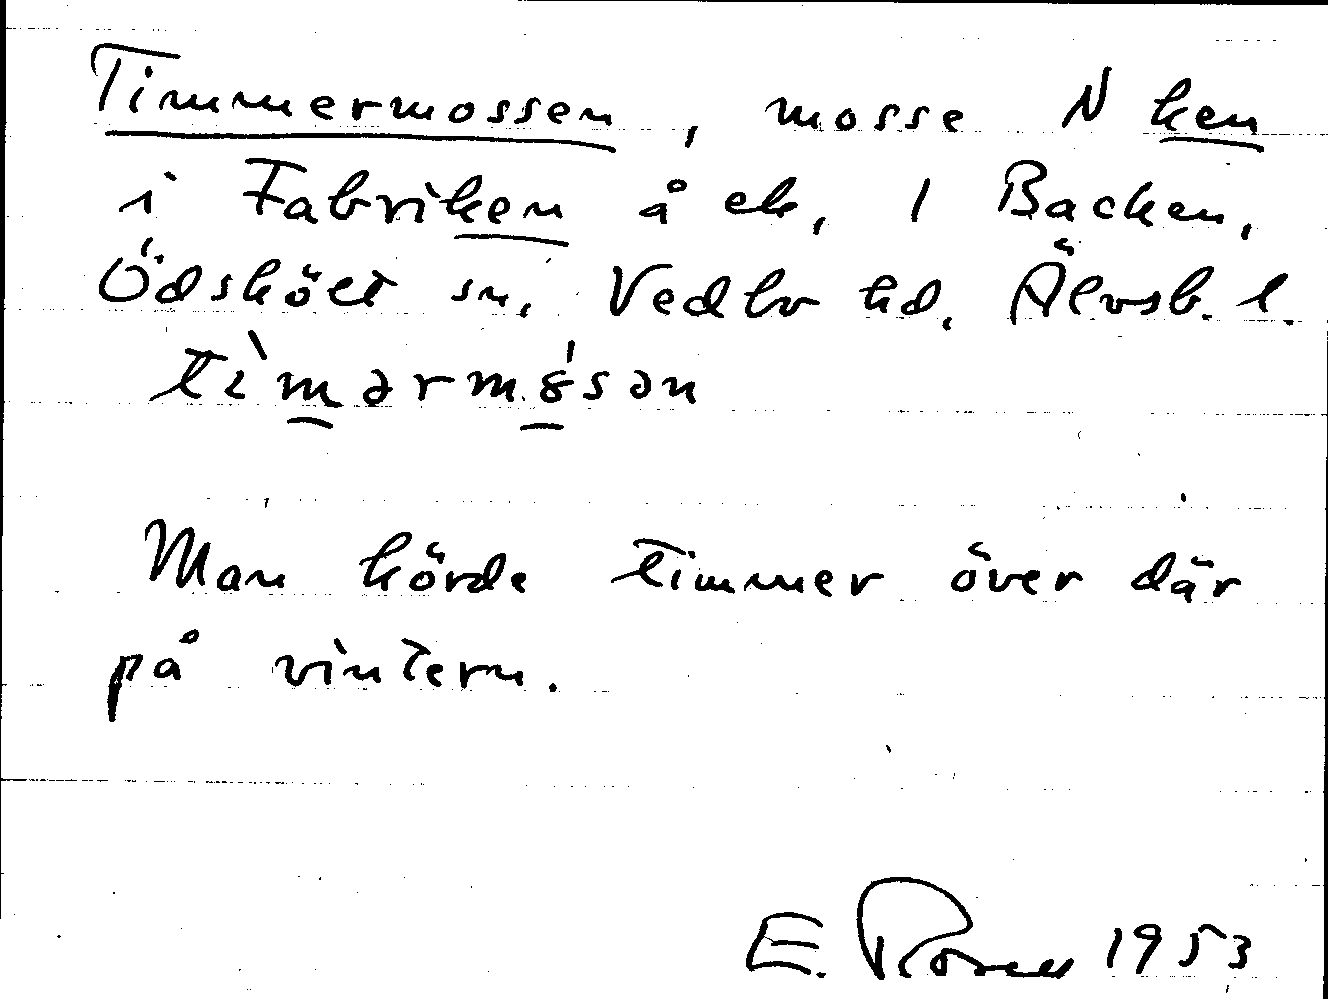 Timmermossen, mosse N ken
i Fabriken å ek. 1 Backen,
Ödskölt sn, Vedbo hd. Älvsb. l.
Man körde timmer över där
på vintern.
E. 1953